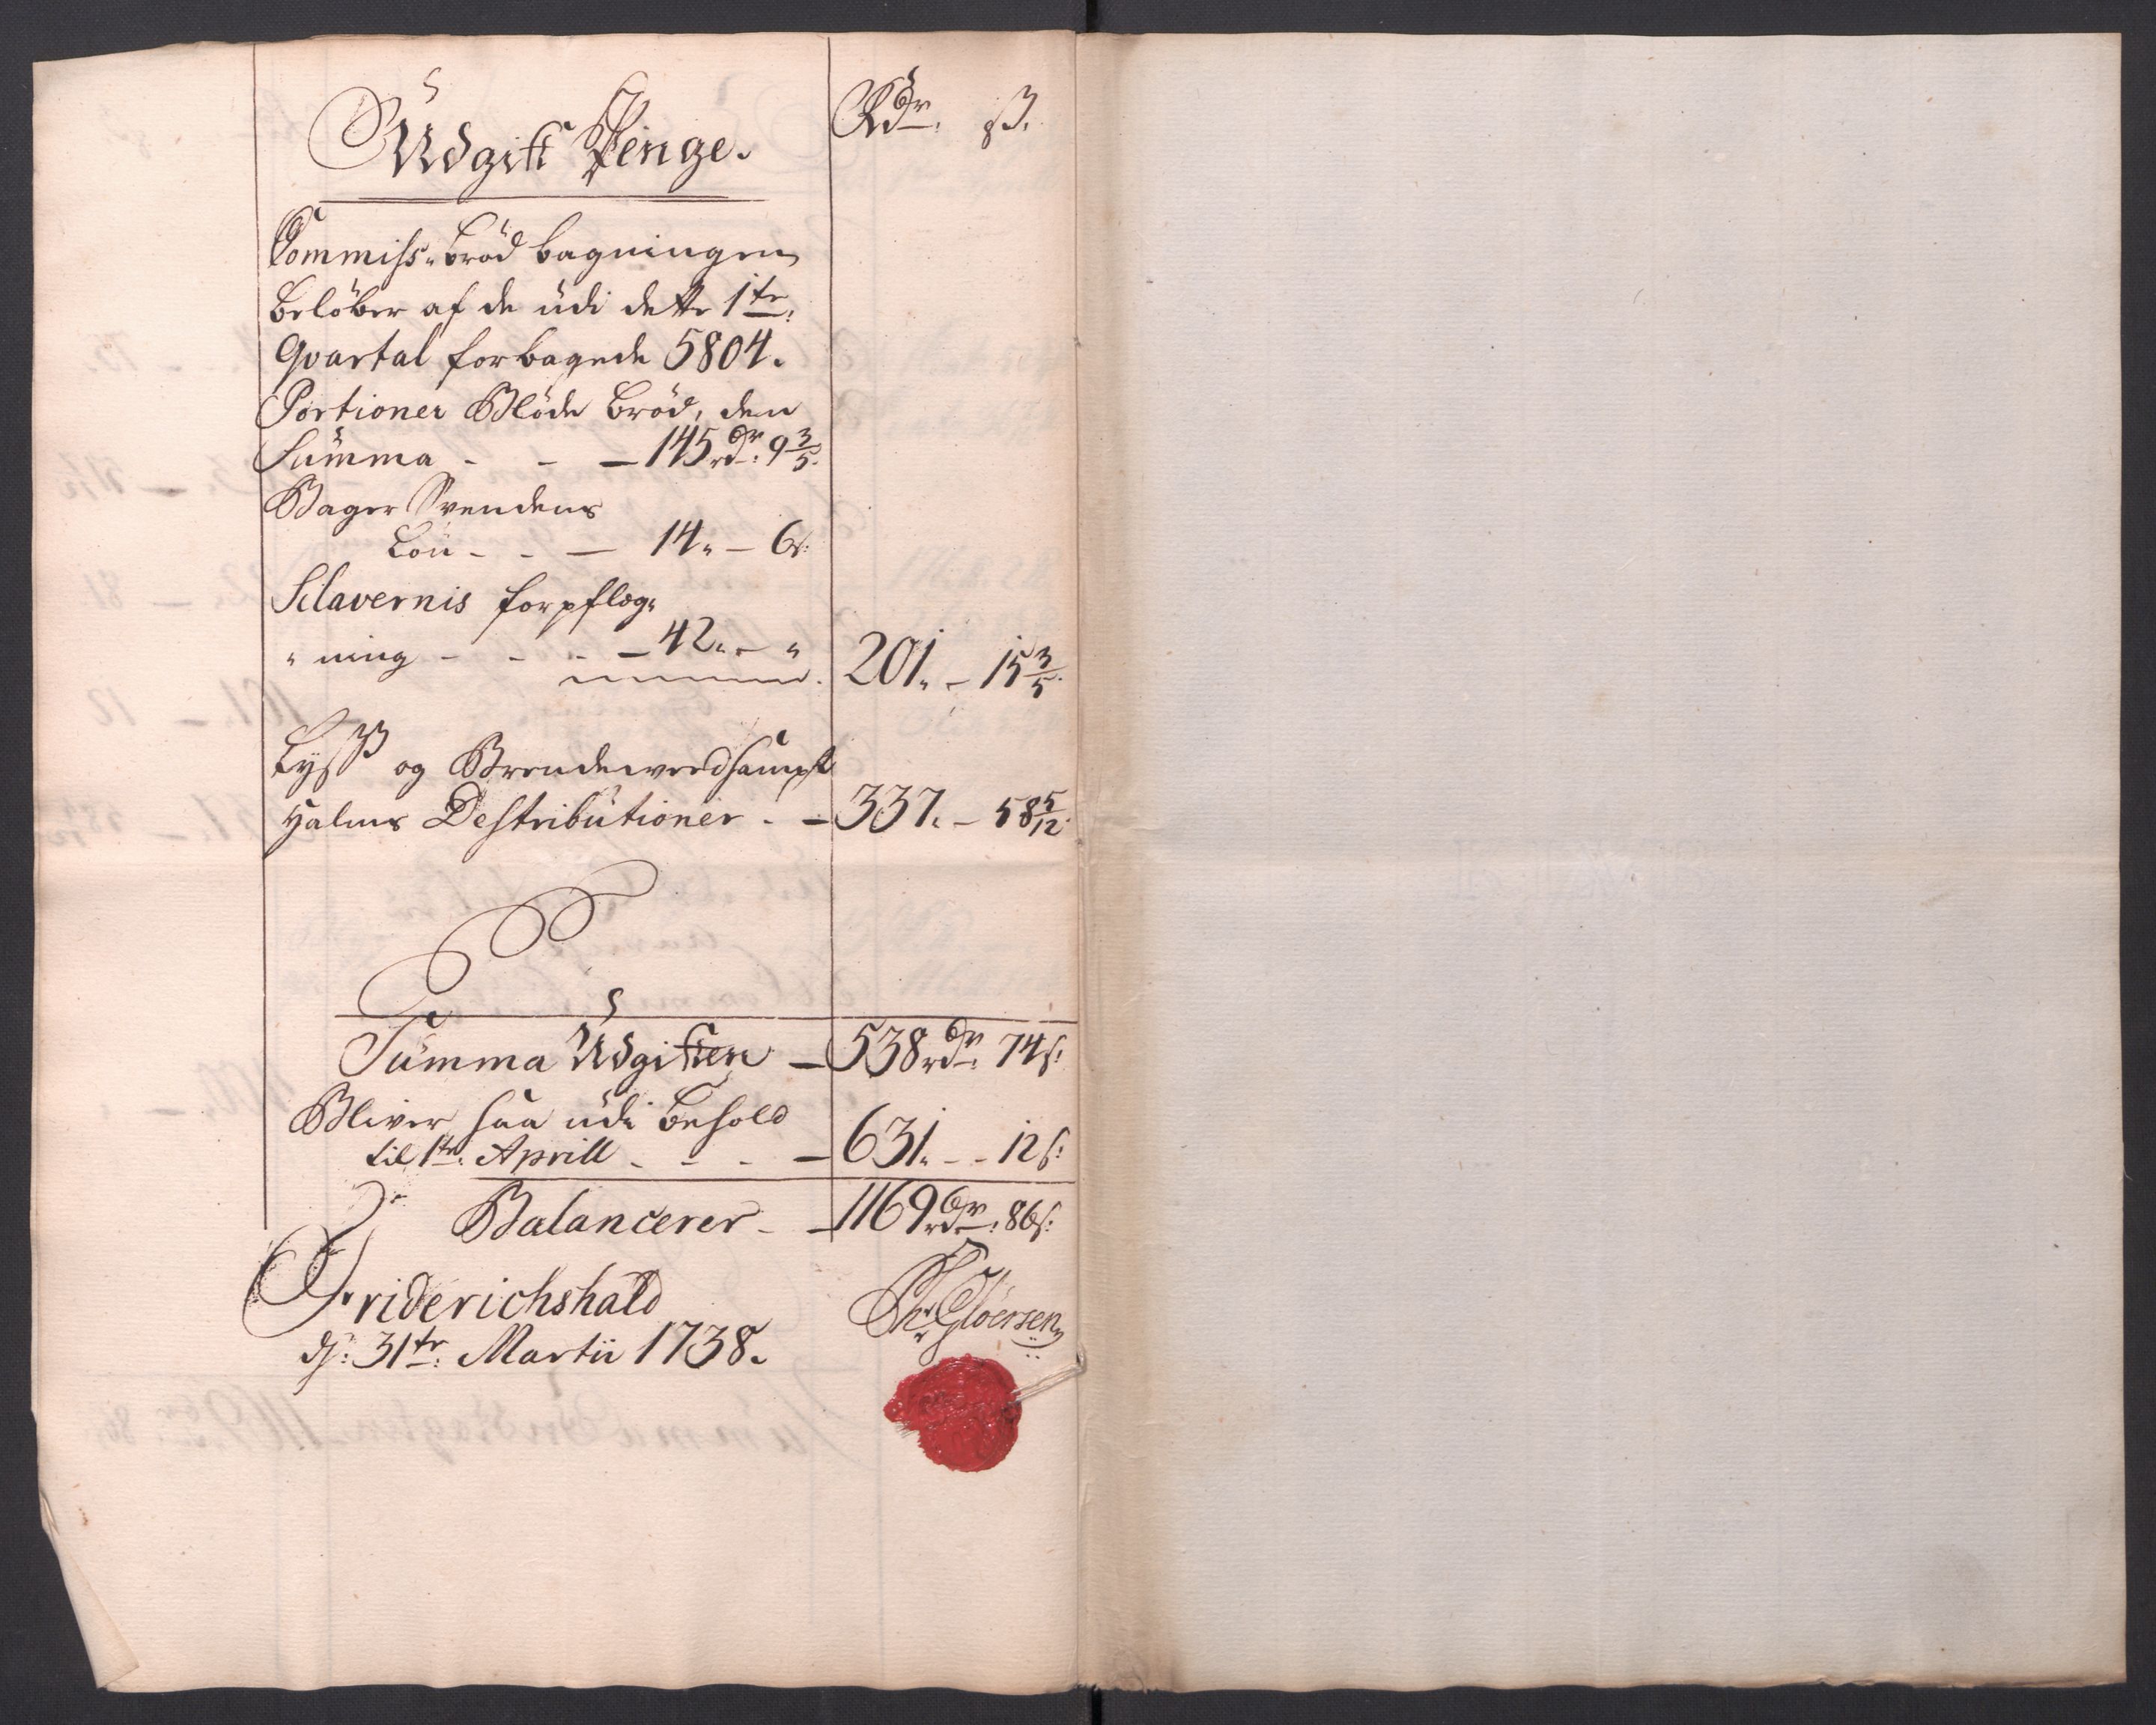 Udgift Penge. Rdr. ß.
Commiss-brød bagningen
beløber af de üdi dette 1te
Qvartal forbagede 5804.
Portioner Bløde brød, den
Summa - - - 145 rdr: 9 3/5.
Bager Svendens
Løn - - - 14. - 6 s:
Sclavernis forpfleg-
"ning - - - - 42. - " 201. - 15 3/5.
Lyss og Brendeveed sampt
Halms Destributioner - - 337. - 58 5/12.
Summa Udgiften - 538 rdr: 74 s:
Bliver saa üdi behold
til 1te Aprill - - - - 631. - - 12 s:
Balancerer - - 1169 rdr: 86 s:
Friderichshald
d: 31te: Martii 1738.
Gløersen